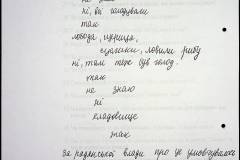 ні, всі голодували
так
лобода, щириця,
сусліки, ловили рибу
ні, там теж був голод.
так
не знаю
ні
кладовище
так
За радянської влади про це умовчувалося